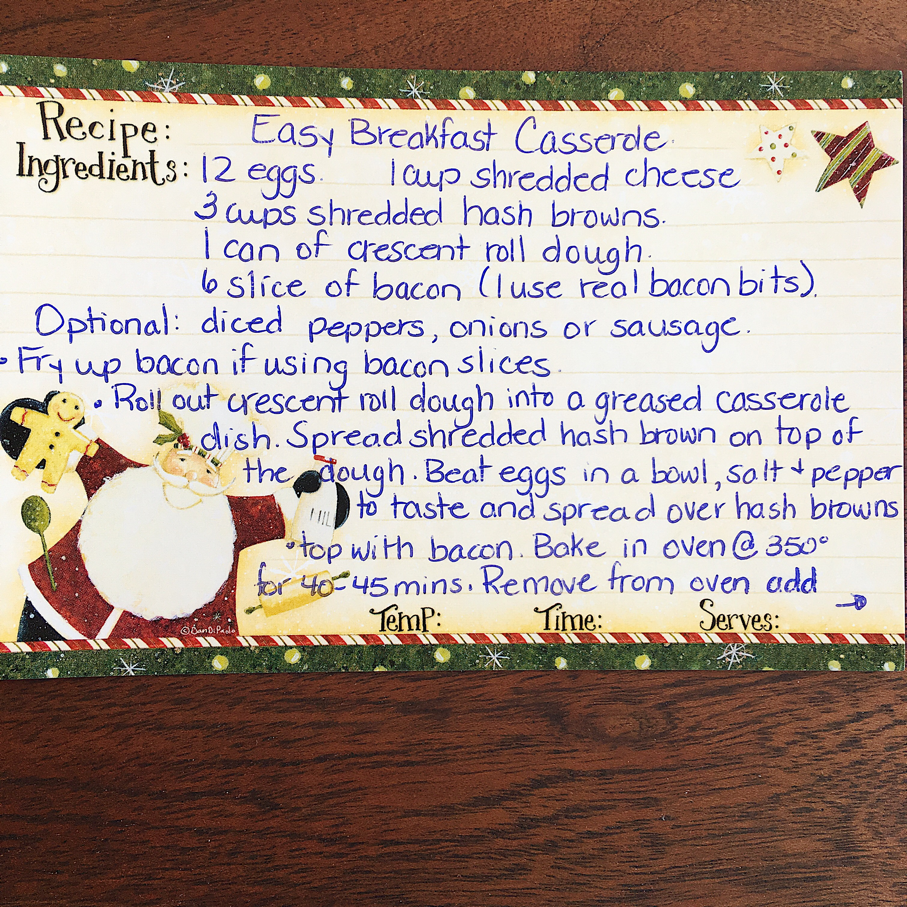 Recipe: Easy Breakfast Casserole.
Ingredients: 12 eggs. 1 cup shredded cheese
3 cups shredded hash browns.
1 can of crescent roll dough.
6 slice of bacon (I use real bacon bits).
Optional: diced peppers, onions or sausage.
• Fry up bacon if using bacon slices.
• Roll out crescent roll dough into a greased casserole
dish. Spread shredded hash brown on top of
the dough. Beat eggs in a bowl, salt + pepper
to taste and spread over hash browns
• top with bacon. Bake in oven @ 350°
for 40-45 mins. Remove from oven add
→
Temp: Time: Serves:
©Dan DiPaolo